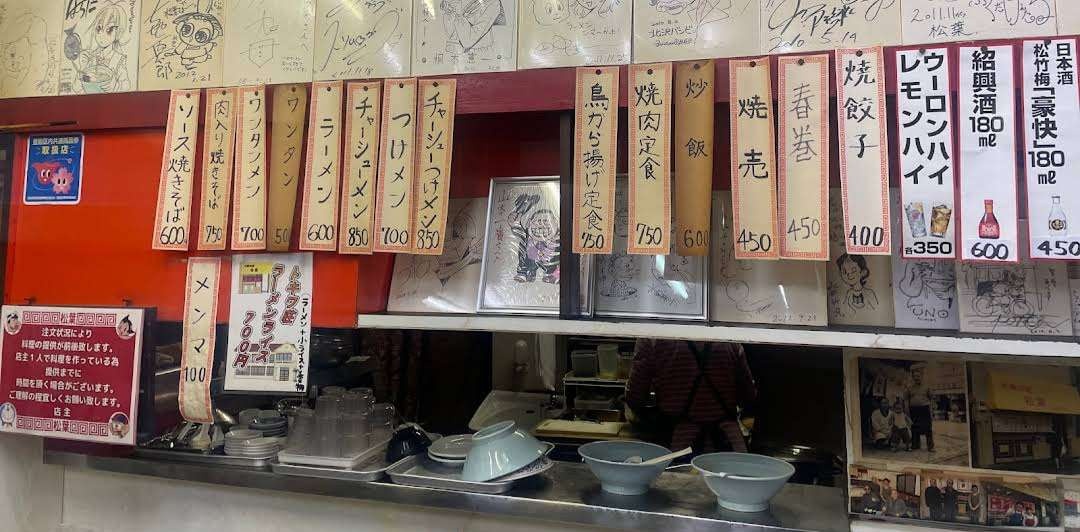 2012
2011.11.18
2010.5.14
2011.11.
松葉
豊島区内共通商品券
取扱店
ソース焼きそば
600
肉入り焼きそば
750
ワンタンメン
700
ワンタン
50
ラーメン
600
チャーシューメン
850
つけメン
700
チャーシューつけメン
850
鳥から揚げ定食
750
焼肉定食
750
炒飯
600
焼売
450
春巻
450
焼餃子
400
ウーロンハイ
レモンハイ
各350
紹興酒180㎖
600
日本酒
松竹梅「豪快」180㎖
450
メンマ
100
トキワ荘
ラーメンライス
700円
松葉
注文状況により
料理の提供が前後致します。
店主1人で料理を作っている為
提供までに
時間を頂く場合がございます。
ご理解の程宜しくお願い致します。
店主
松葉
UNO